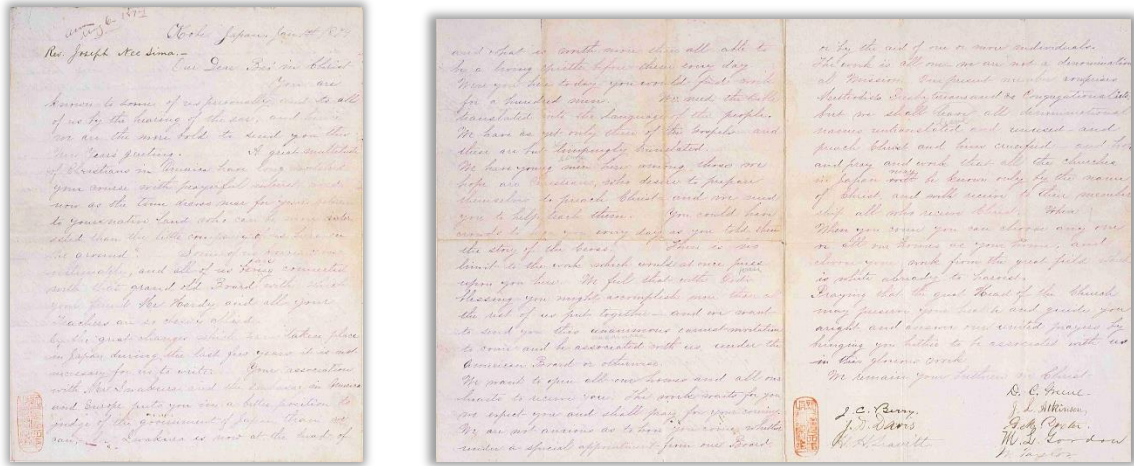 Aug 6. 1872
Kobe Japan, Jan 1874
Rev. Joseph Nee Sima.-
Our Dear Bro. in Christ
You are
known to some of us personally and to all
of us by the hearing of the ear, and hence
we are the more bold to send you this
New Years greeting. A great multitude
of Christians in America have long
your course with prayerful interest and
now as the time draws near for your return
to your native land who can be more
than the little company of us here on
the ground.
and all of us being connected
with that grand old Board with which
your friend Mr Hardy and all your
teachers are so
by the great changes which have taken place
in Japan during the last few years it is not
necessary for us to write. Your association
with Mr and the Embassy in America
and Europe puts you in a better position to
judge of the government of Japan than we
can. is now at the head of
and what is worth more than all able to
by a living epistle before them every day
Were you here today you would find work
for a hundred men. We need the Bible
translated into the language of the people.
We have as yet only three of the Gospels and
these are but lamely translated.
We have young men here among those we
hope are Christians, who desire to prepare
themselves to preach Christ and we need
you to help teach them. You could have
crowds to hear you every day as you told them
the story of the Cross. There is no
limit to the work which would at once press
upon you here. We feel that with God's
blessing you might accomplish more than all
the rest of us put together - and we want
to send you this unanimous earnest invitation
to come and be associated with us, under the
American Board or otherwise.
We want to open all our houses and all our
hearts to receive you. This work waits for you
we expect you and shall pray for your coming.
We are not anxious as to how you come, whether
under a special appointment from our Board
or by the aid of one or more individuals.
The work is all one we are not a denomination
al Mission. Our present number comprises
Methodists Presbyterians and Congregationalists
but we shall leave all denominational
names untranslated and unused and
preach Christ and him crucified - and
and pray and work that all the churches
in Japan may be known only by the name
of Christ, and will receive to their member
ship all who receive Christ.
When you come you can choose any one
or all our homes as your home, and
choose your work from the great field which
is white already to harvest.
Praying that the great Head of the Church
may preserve your health and guide you
aright and answer our united prayers by
bringing you hither to be associated with us
in this glorious work
We remain your brethren in Christ.
D. C. Greene
J. C. Berry.
J. L. Atkinson.
J. D. Davis
H. H. Leavitt
M. L. Gordon
W. Taylor